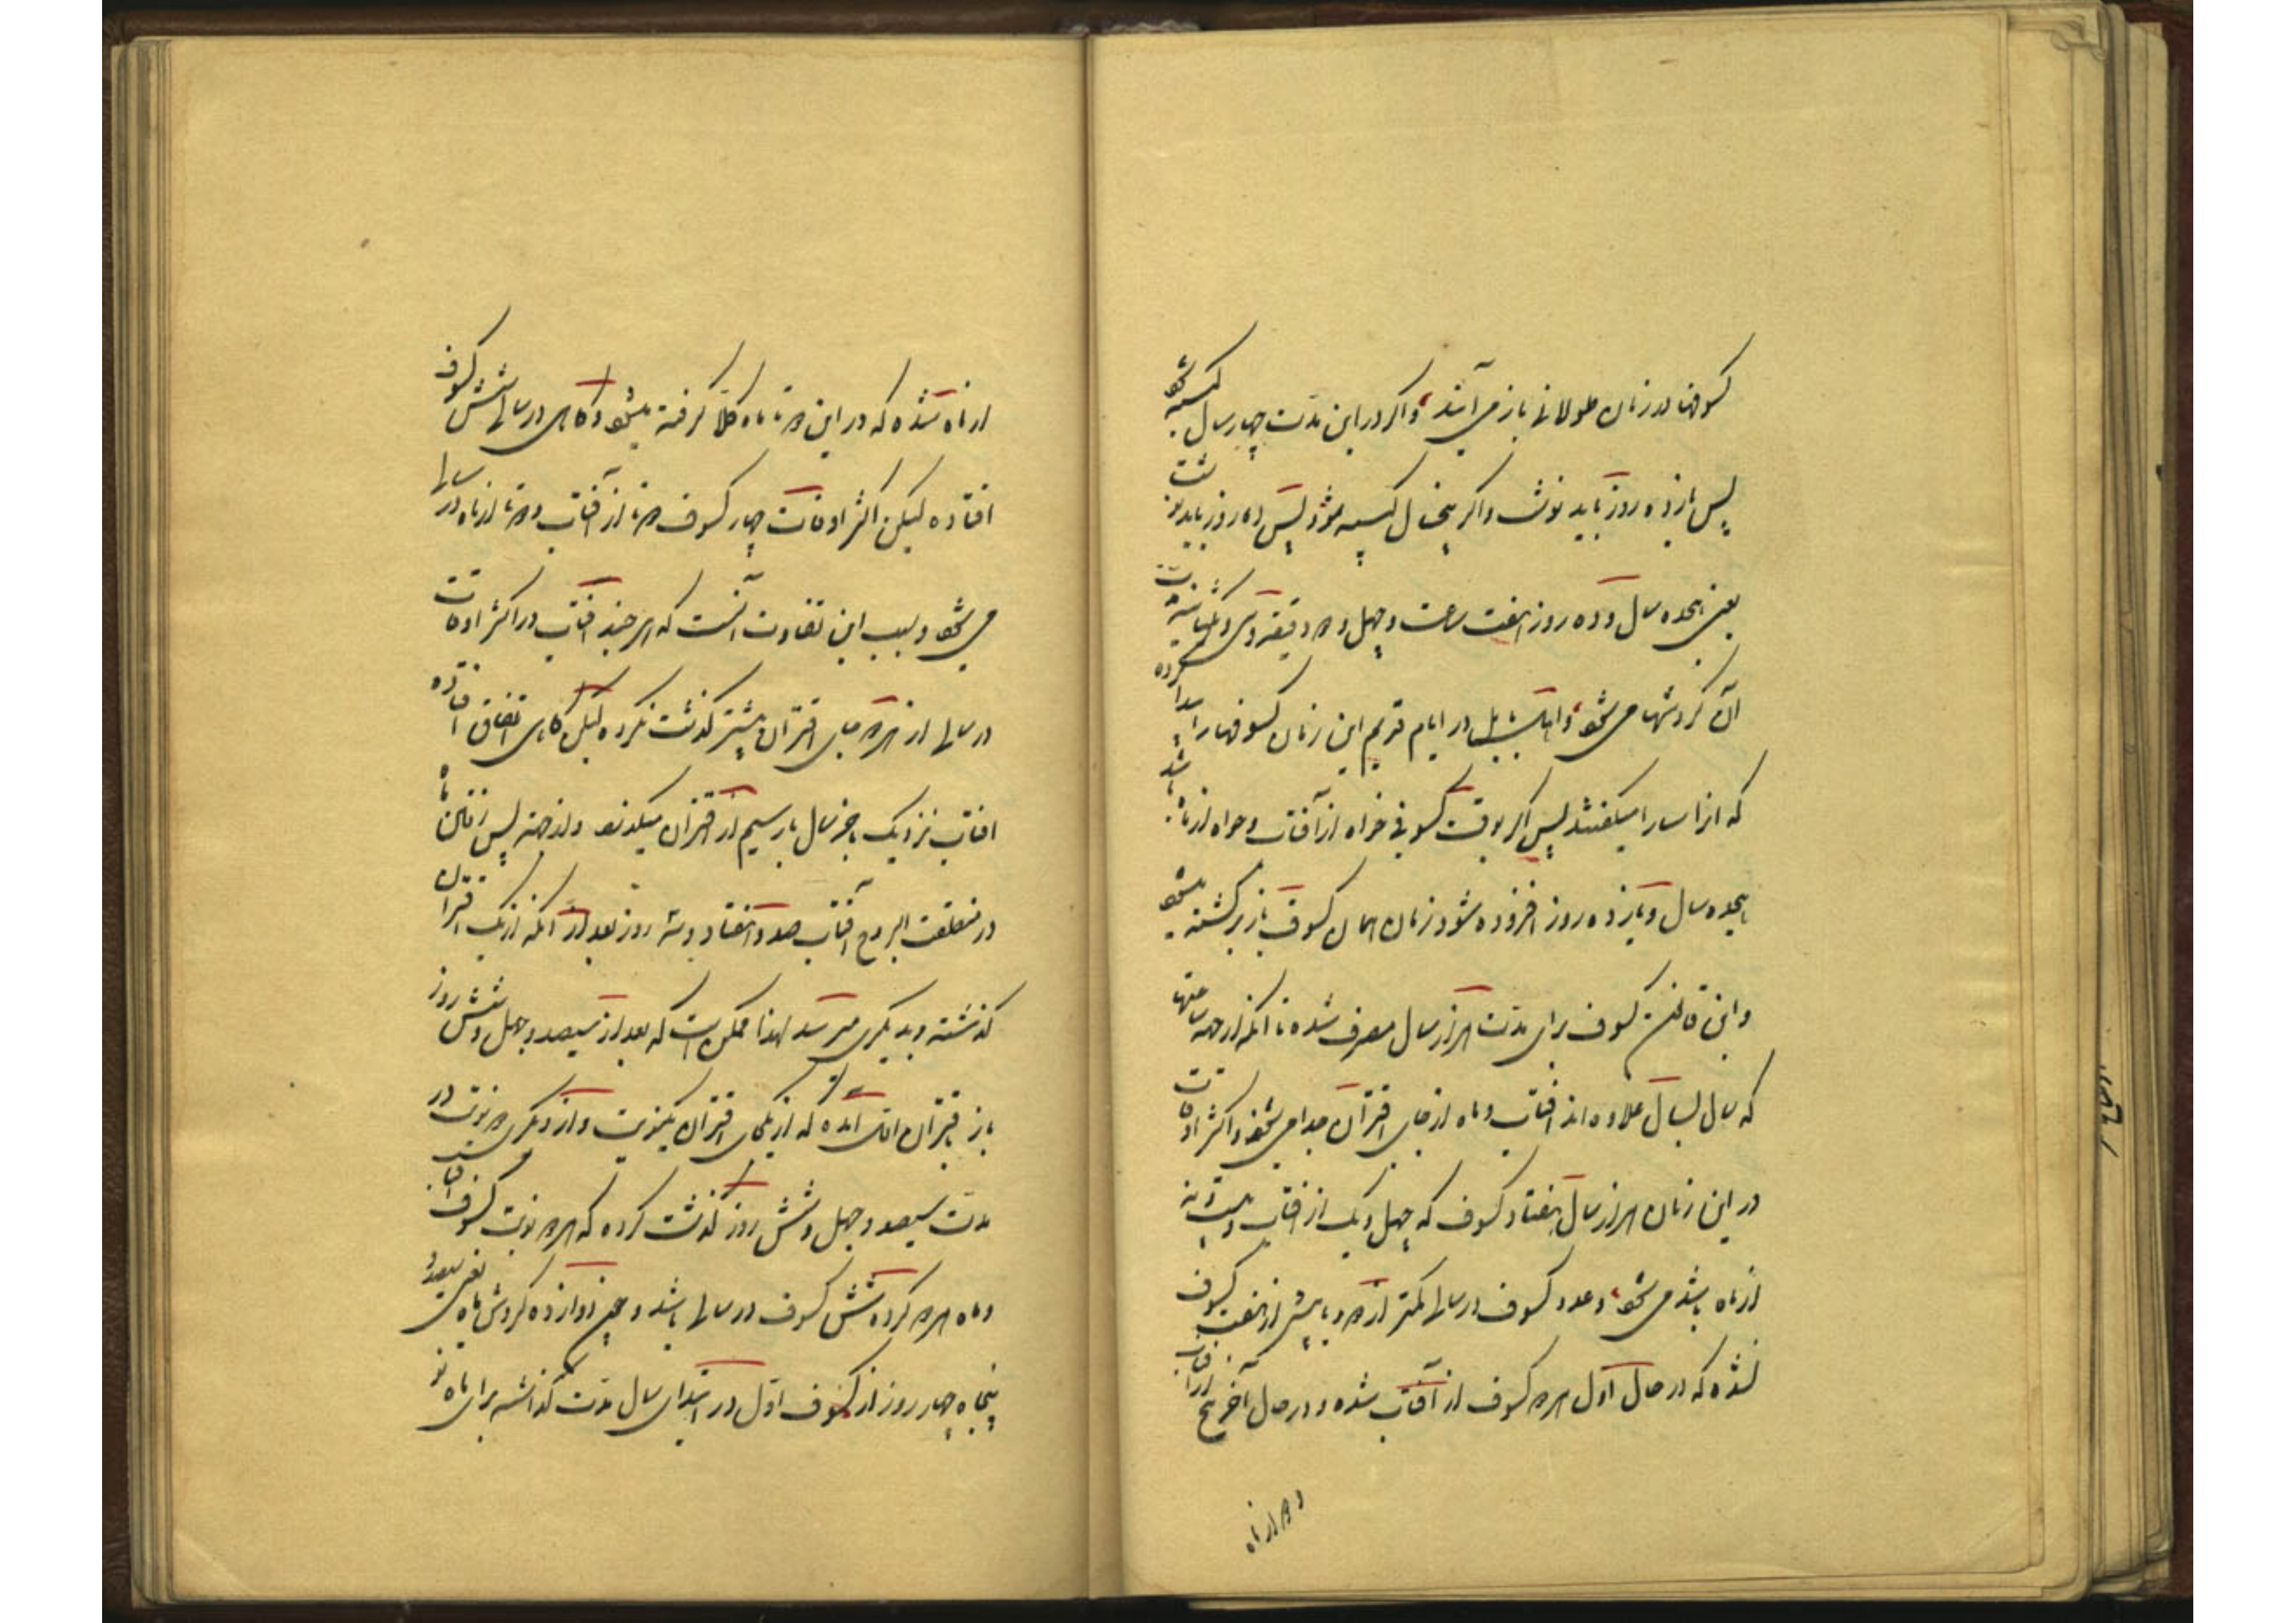 کسوفها در زمان طولانی باز می آیند و اگر در این مدت چهار سال کبیسه شود
پس یازده روز باید نوشت و اگر پنج سال کبیسه شود پس ده روز باید نوشت
یعنی هجده سال و ده روز هفت ساعت و چهل و دو دقیقه و سی و یک ثانیه
آن گردشها می شود و اهل بابل در ایام قدیم این زمان کسوفها را پیدا کرده
که آنرا سارا میگفتند پس اگر بوقت کسوفی خواه از آفتاب و خواه از ماه باشد
هجده سال و یازده روز افزوده شود زمان همان کسوف باز برگشته میشود
و این قانون کسوف برای مدت هزار سال مصرف شده تا آنکه از جمه ساعتها
که سال بسال علاوه اند آفتاب و ماه از جای اقتران جدا می شود و اکثر اوقات
در این زمان هرز سال هفتاد کسوف که چهل و یک از آفتاب و بیست و نه
از ماه باشد می شود و عدد کسوف در سالی کمتر از دو و یا بیش از هفت کسوف
نشده که در حال اول هر دو کسوف از آفتاب شده و در حال آخر پنج از آفتاب
و دو از ماه
از ماه شده که در این دو تا ماه کلا گرفته میشود و گاهی در سالی شش کسوف
افتاده لیکن اکثر اوقات چهار کسوف دو تا از آفتاب و دو تا از ماه در سالی
می شود و سبب این تفاوت آنست که هر چند آفتاب در اکثر اوقات
در سالی از هر دو جای اقتران بیشتر گذشت نکرده لیکن گاهی اتفاق افتاده
آفتاب نزدیک بآخر سال بار سیم از اقتران میگذرد و از جهة پس رفتن ماه
در منطقت البروج آفتاب صد و هفتاد و سه روز بعد از آنکه از یک اقتران
گذشته و بدیگری میرسد لهذا ممکن است که بعد از سیصد و چهل و شش روز
باز باقتران اول آمده که از یکجای اقتران یکنوبت و از دیگری دو نوبت در
مدت سیصد و چهل و شش روز گذشت کرده که هر دو نوبت کسوف آفتاب
و ماه هر دو کرده شش کسوف در سالی باشد و چون دوازده گردش ماه یعنی سیصد و
پنجاه و چهار روز از کسوف اول در ابتدای سال مدت گذاشته برای ماه نو